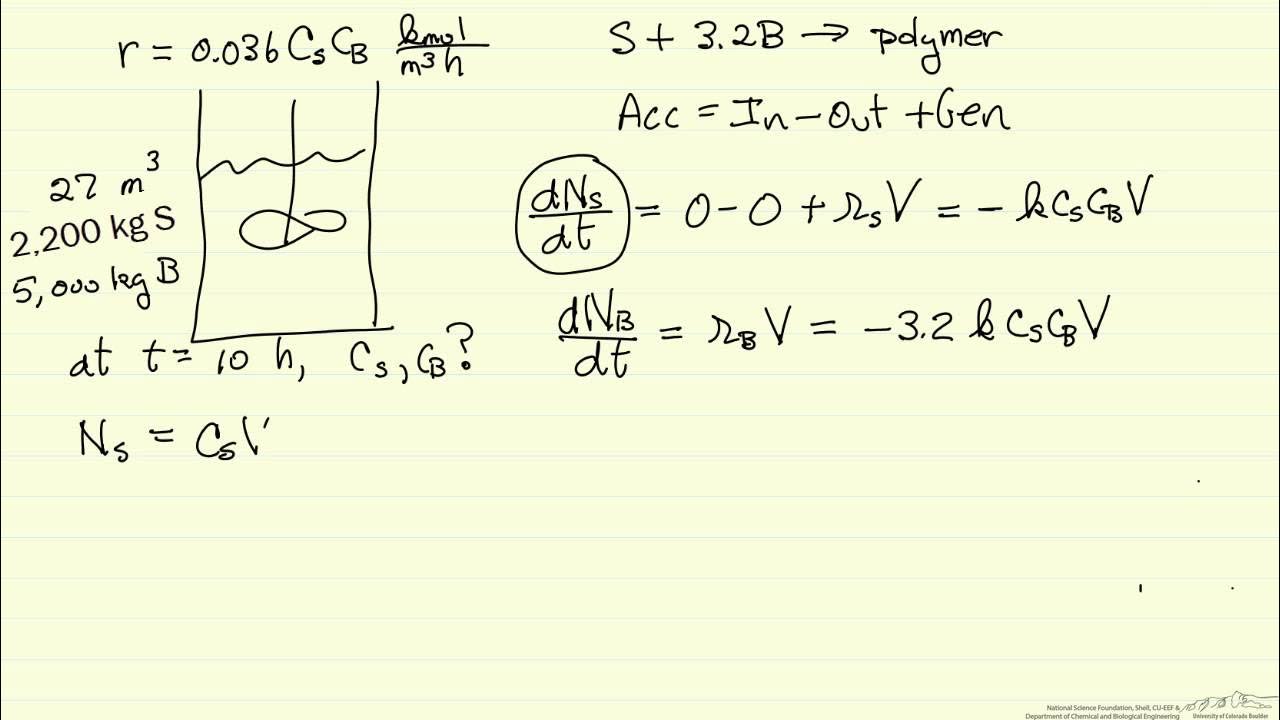 r = 0.036 CsCB kmol/m³h
S + 3.2B → polymer
Acc = In - Out + Gen
27 m³
2,200 kg S
5,000 kg B
dNs/dt = 0 - 0 + rsV = - kCsCBV
dNB/dt = rBV = -3.2 kCsCBV
at t = 10 h, Cs, CB?
Ns = CsV
National Science Foundation, Shell, CU-EEF &
Department of Chemical and Biological Engineering
University of Colorado Boulder